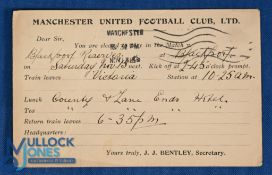 MANCHESTER UNITED FOOTBALL CLUB, LTD.
MANCHESTER
Dear Sir,
You are pleased to play in the Match v
Blackpool Reserves at Blackpool
on Saturday Nov 15 next Kick off at 2-45 o'clock prompt.
Train leaves Victoria Station at 10.25am
Lunch County & Lane Ends Hotel.
Tea
Return train leaves 6-35pm
Headquarters:
Yours truly, J. J. BENTLEY, Secretary.
MULLOCK
JONES